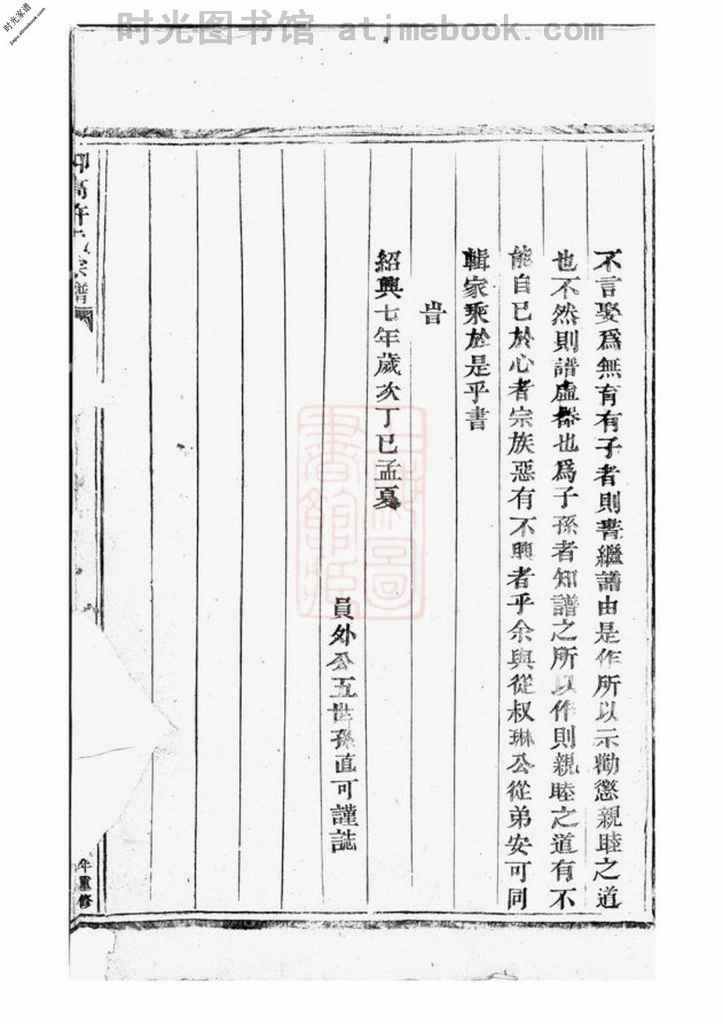 时光图书馆 atimebook.com
时光家谱
不言娶爲無育有子者則書繼譜由是作所以示勸懲親睦之道
也不然則譜虛器也爲子孫者知譜之所以作則親睦之道有不
能自已於心者宗族惡有不興者乎余與從叔琳公從弟安可同
輯家乘於是乎書
旹
紹興七年歲次丁巳孟夏
員外公五世孫直可謹誌
宗譜
年重修